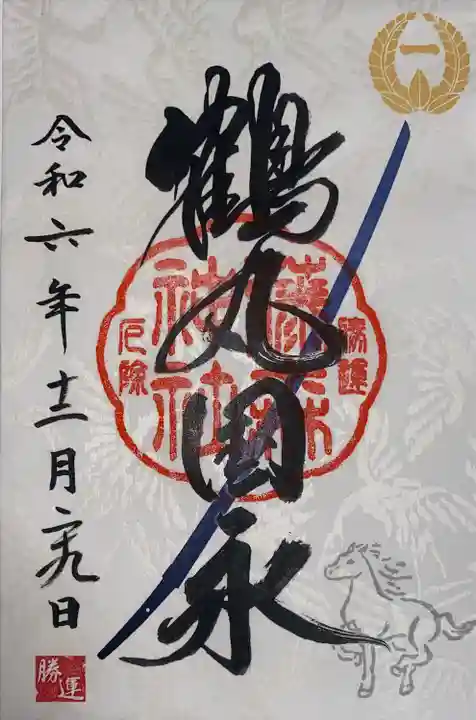 一
鶴丸国永
藤森
神社
勝運
厄除
令和六年十二月二九日
勝運